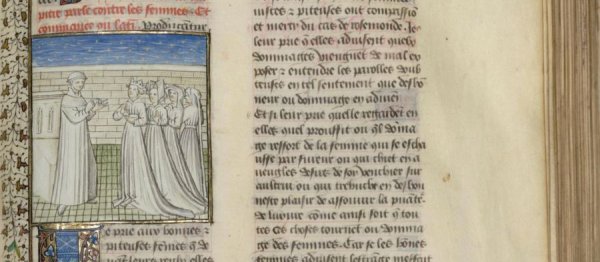 pitre parle contre les femmes. Et
commence ou lati. Producatur
E prie aux bonnes et
piteuses femes q̃ de
leurs
sises ⁊ piteuses ont compassiō
et mercy du cas de rosemonde. Je
leur prie q̃ elles aduisent quelz
dommages viengnēt de mal ex
poser ⁊ entendre les parolles doub
teuses en tel sentement que deshō
neur ou dommage en aduiēt
Et si leur prie quelle regardēt en
elles quel prouffit ou q̃l dōma
ge ressort de la femme qui se eschau
ffe par fureur ou qui chiet en a
ueugles desirs de soy venchier sur
aultruy ou qui trebuche en deshon
neste plaisir de assouuir la puāte
de luxure cōme ainsi soit q̃ tou
tes ces choses tournēt ou domma
ge des femmes. Car se les bōnes
femmes aduisent